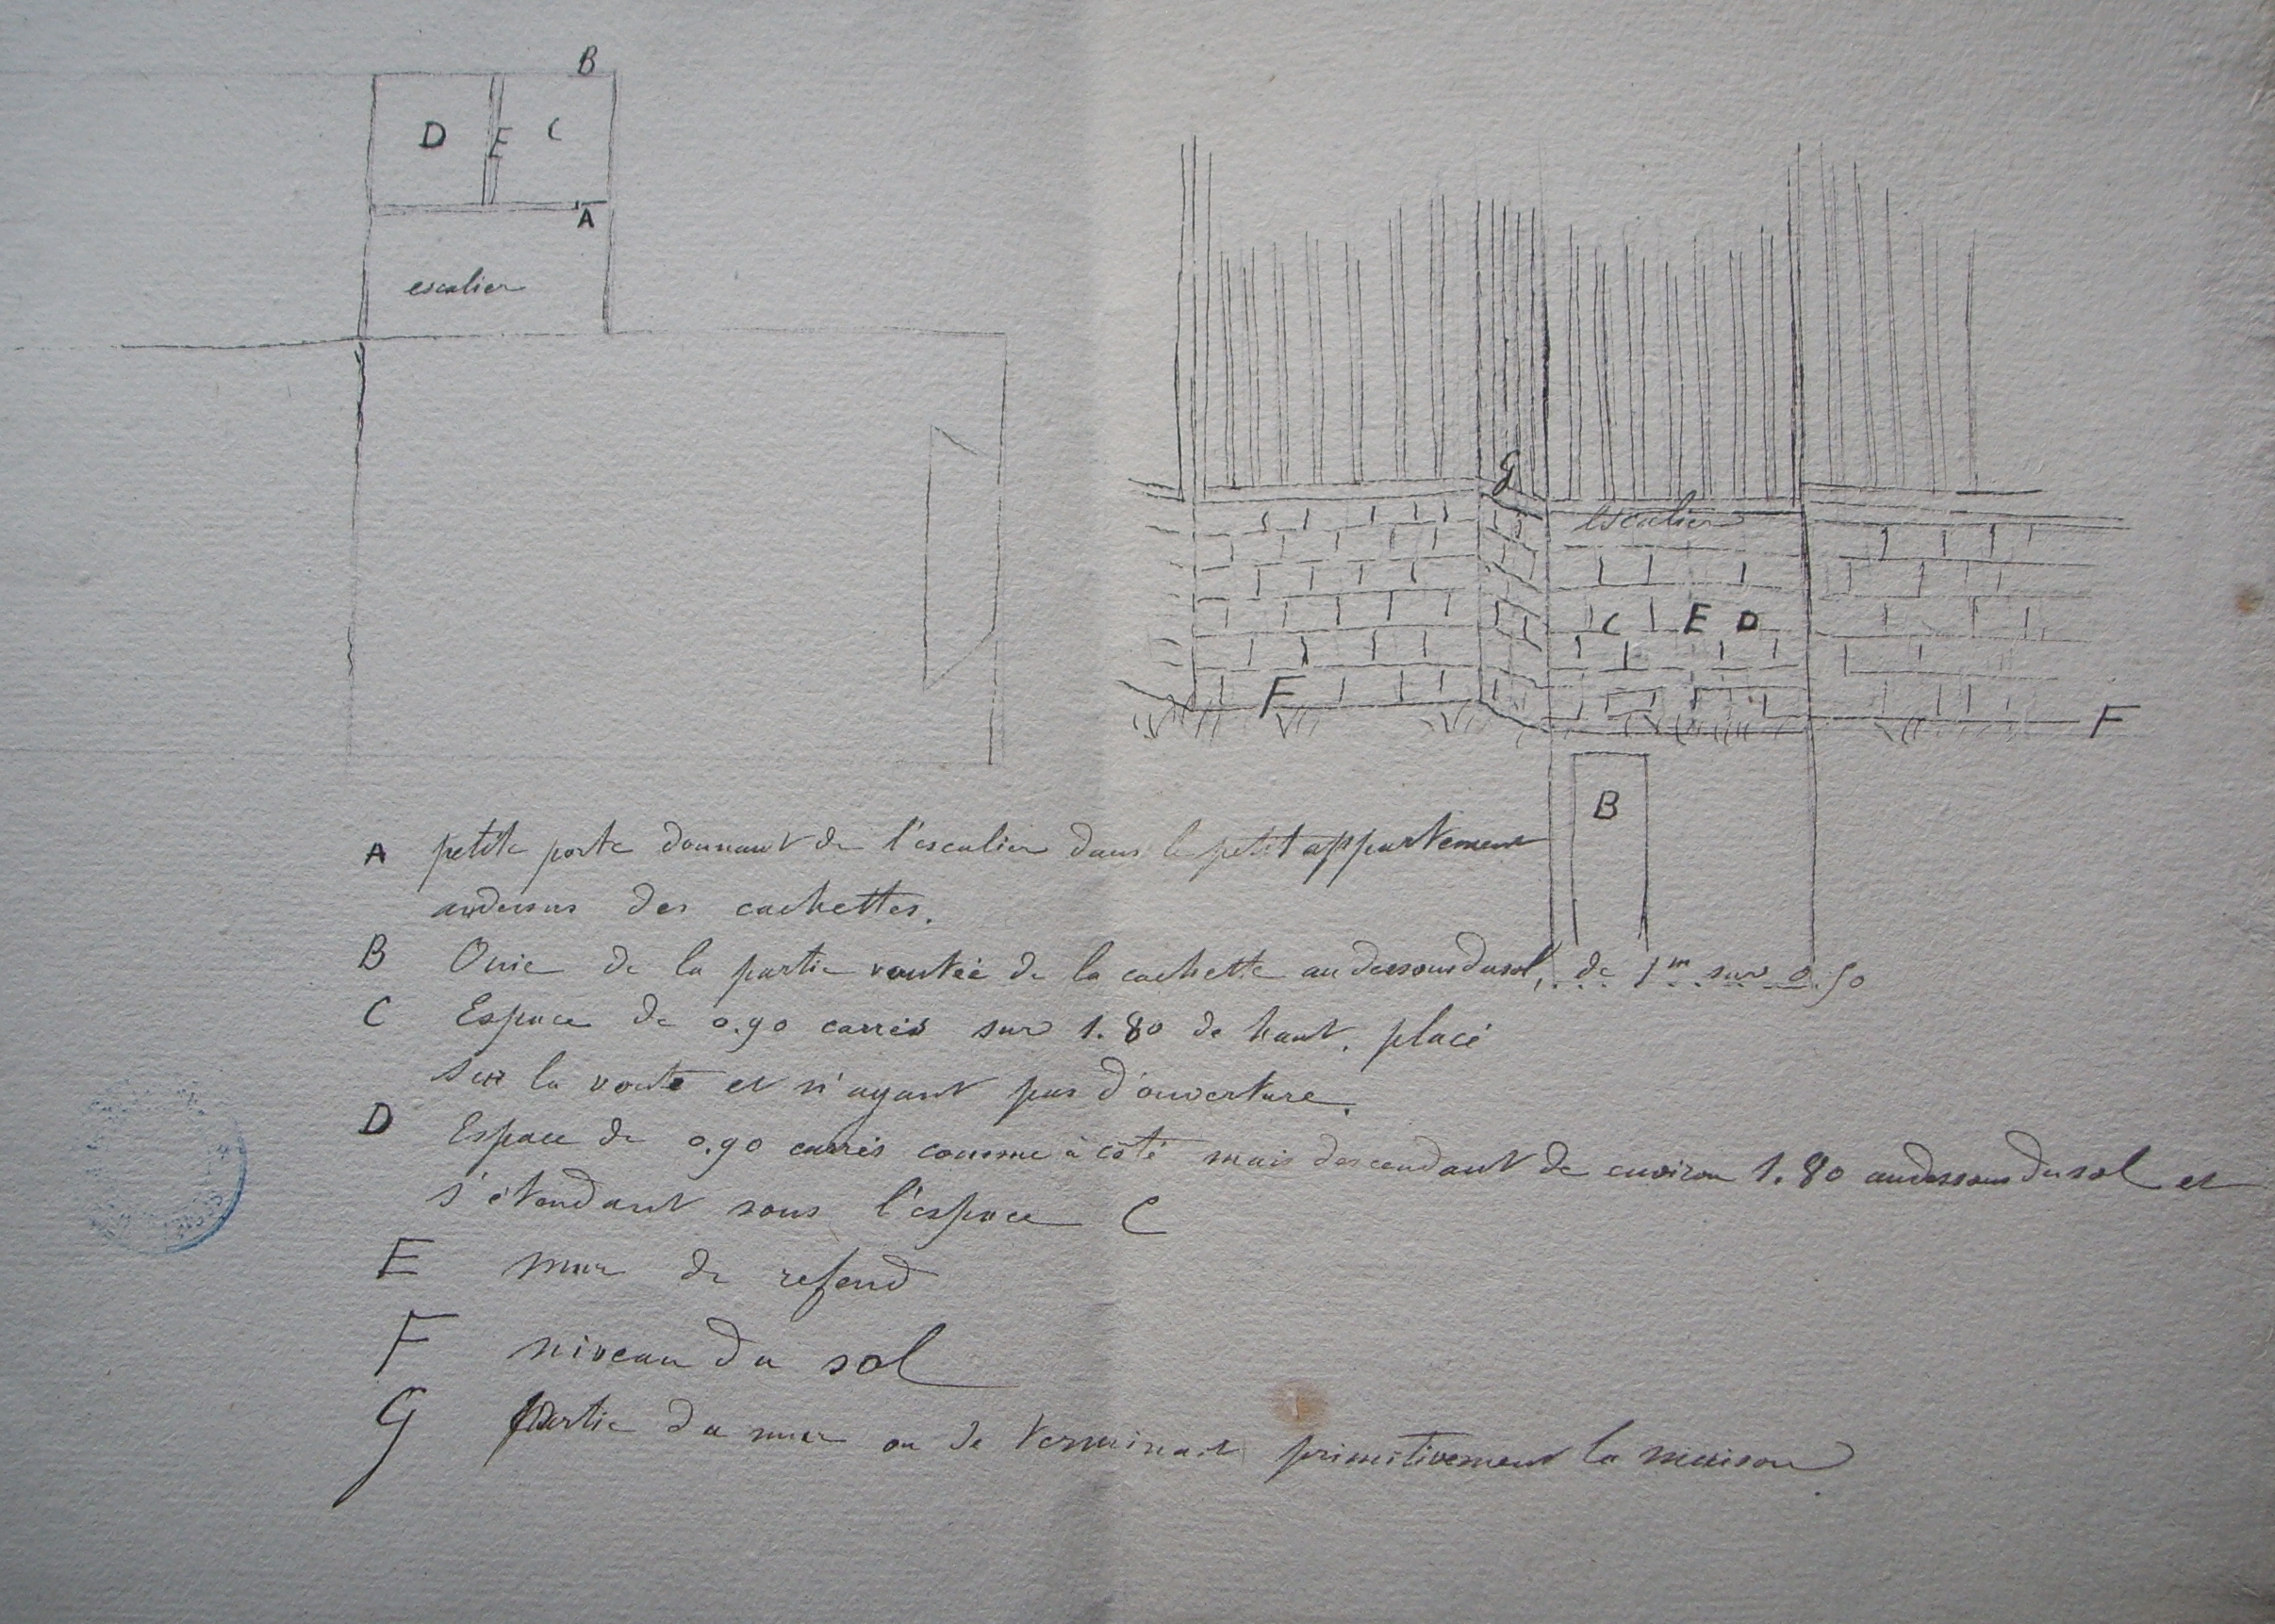 B
D E C
A
escalier
G
escalier
C E D
F
F
B
A petite porte donnant de l'escalier dans le petit appartement
audessus des cachettes.
B de la partie voutée de la cachette au dessous du sol, de 1m sur 0.50
C Espace de 0.90 carrés sur 1.80 de haut, placé
sur la voute et n'ayant pas d'ouverture.
D Espace de 0.90 carrés comme à côté mais descendant de environ 1.80 audessous du sol et
s'étendant sous l'espace C
E mur de refend
F niveau du sol
G Partie du mur ou se terminait primitivement la maison